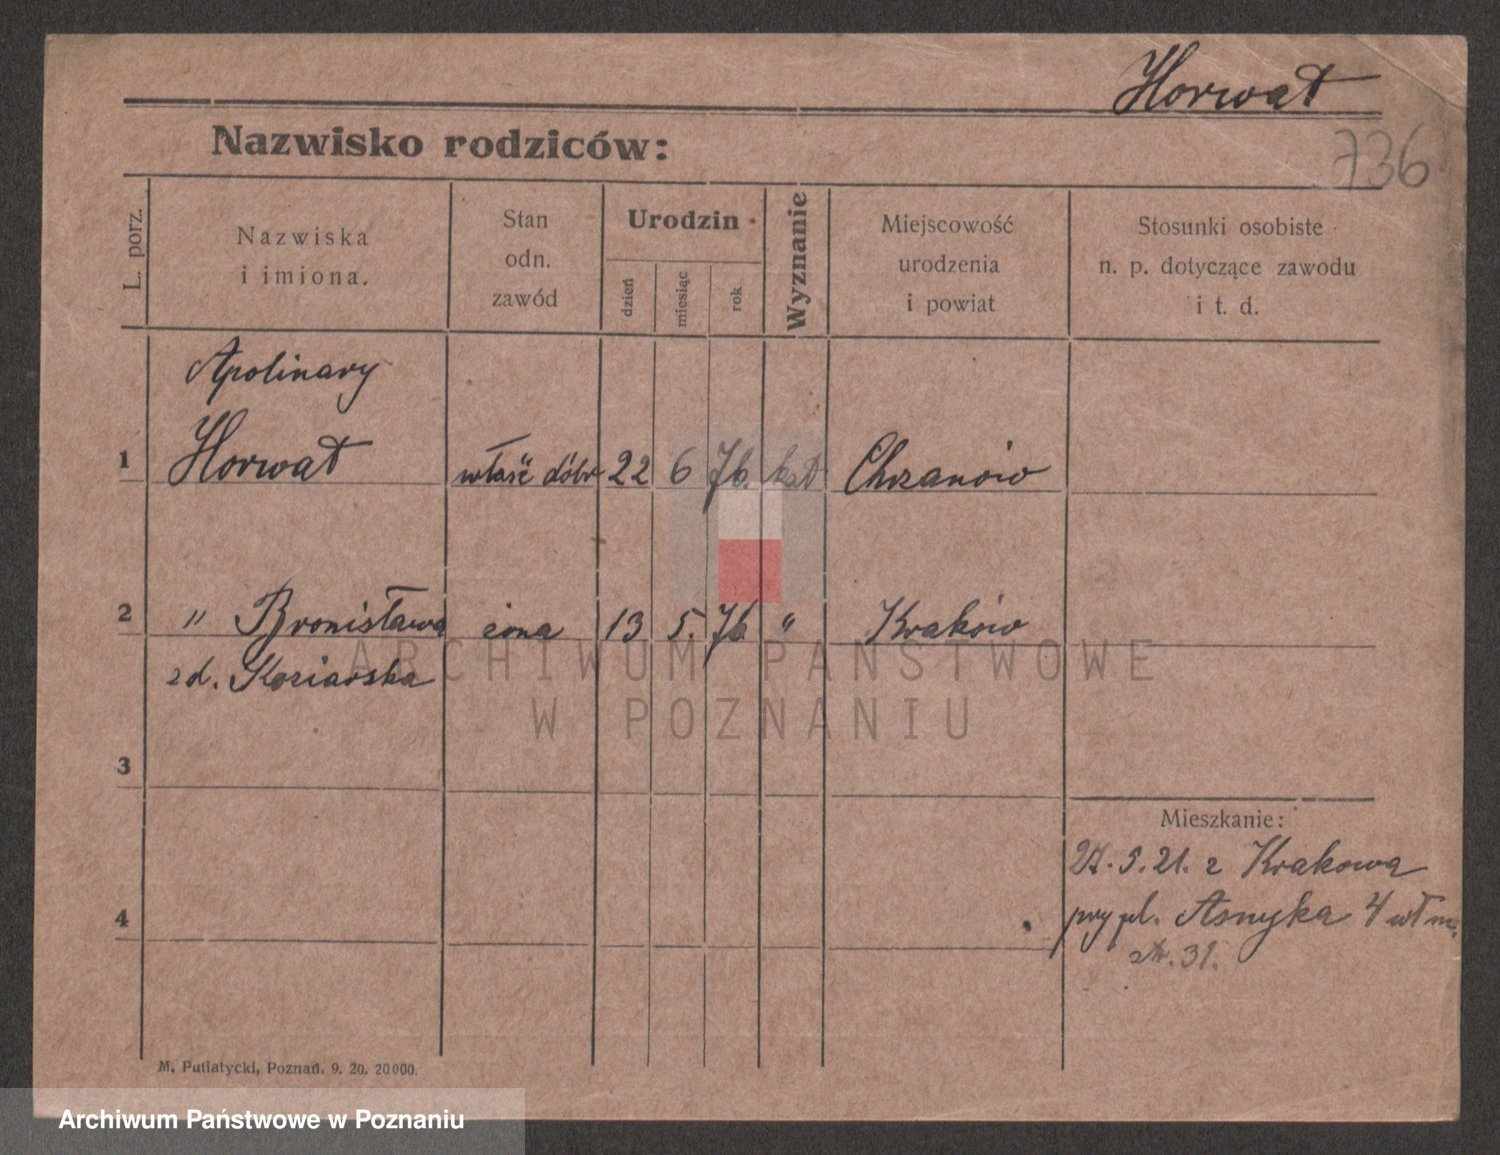 Horwat
736
Nazwisko rodziców:
L. porz.
Nazwiska
i imiona.
Stan
odn.
zawód
Urodzin
dzień
miesiąc
rok
Wyznanie
Miejscowość
urodzenia
i powiat
Stosunki osobiste
n. p. dotyczące zawodu
i t. d.
Apolinary
1 Horwat właść dóbr 22 6 76. kat Chrzanów
2 " Bronisława żona 13 5. 76 " Kraków
zd.
3
Mieszkanie:
27. 5. 21. z Krakowa
przy pl. Asnyka 4 wł m.
4
str. 31.
M. Putiatycki, Poznań. 9. 20. 20000.
ARCHIWUM PAŃSTWOWE
W POZNANIU
Archiwum Państwowe w Poznaniu